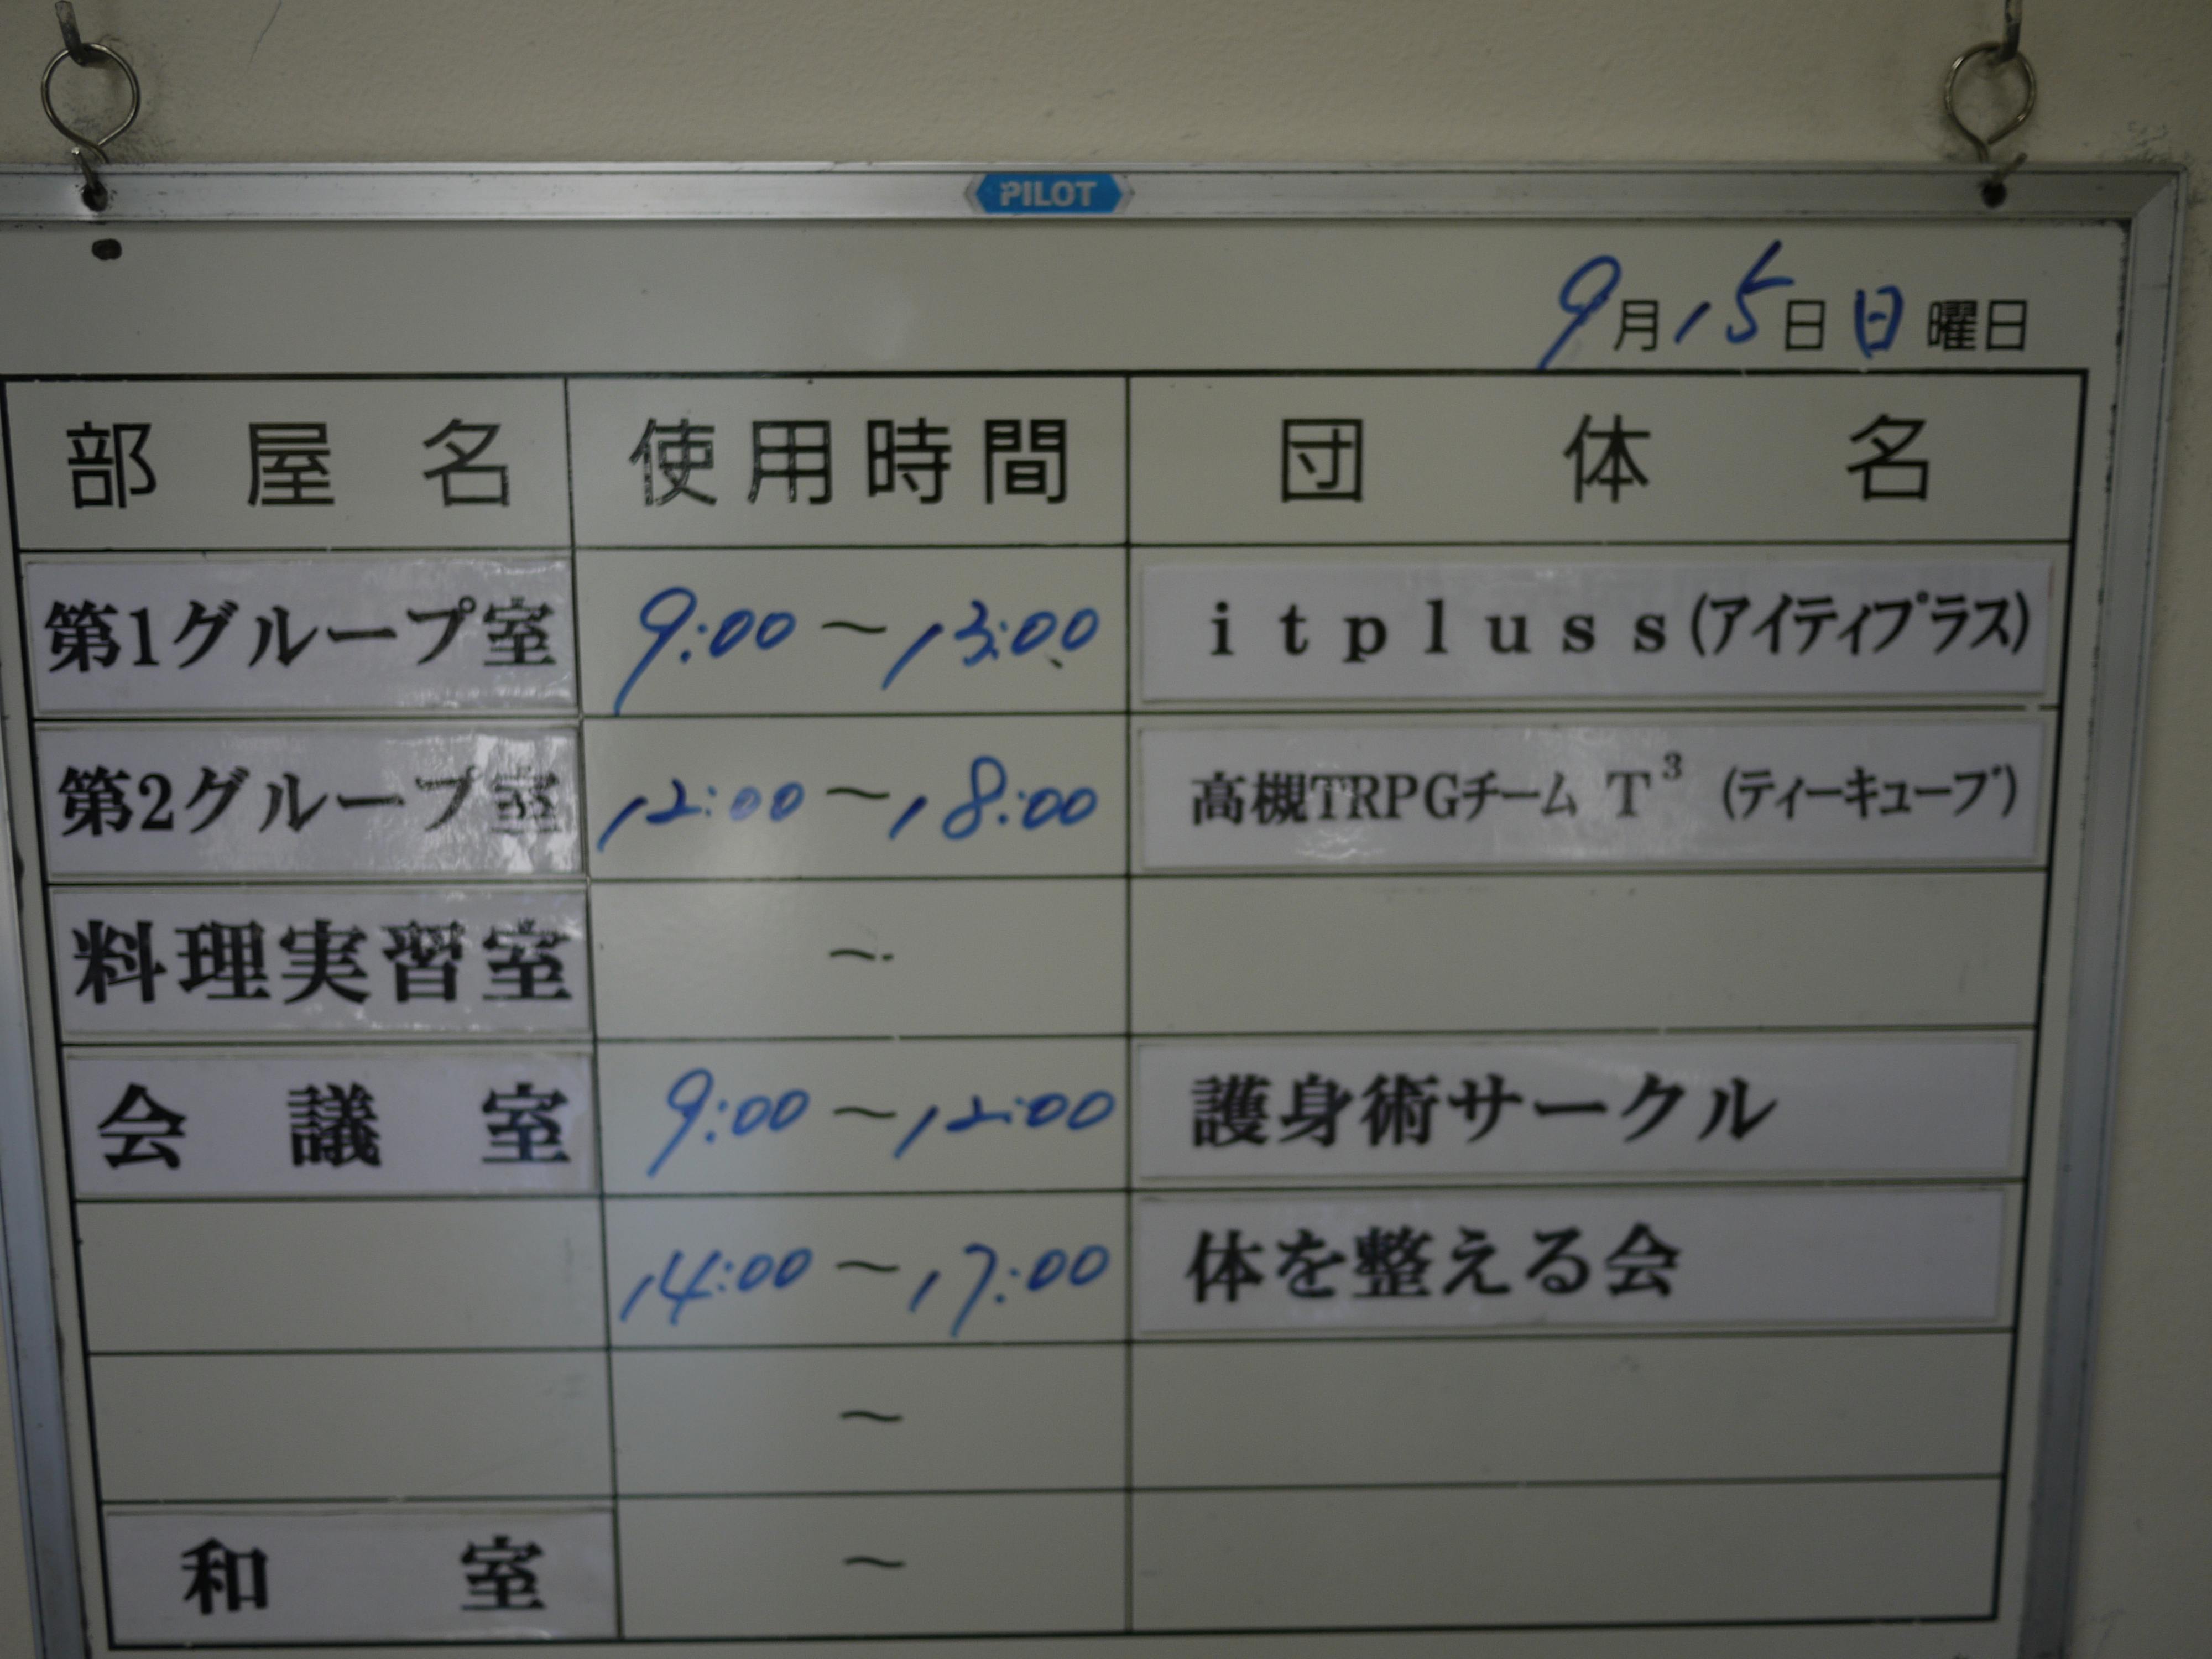 PILOT
9月15日日曜日
部屋名 使用時間 団体名
第1グループ室 9:00～13:00 itpluss(アイティプラス)
第2グループ室 12:00～18:00 高槻TRPGチーム T³ (ティーキューブ)
料理実習室 ～
会議室 9:00～12:00 護身術サークル
14:00～17:00 体を整える会
～
和室 ～